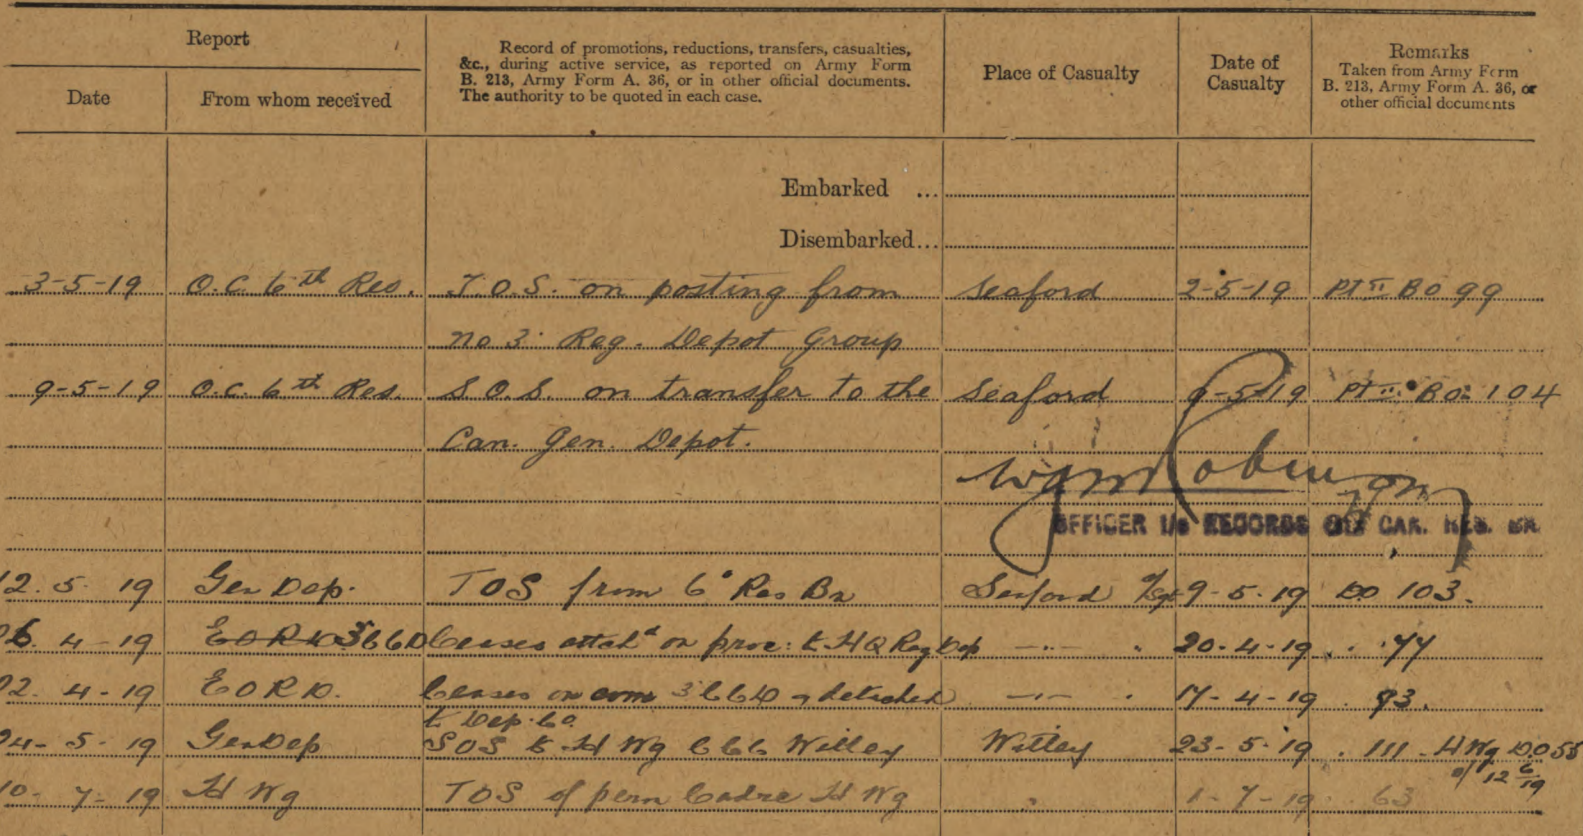 Report
Date
From whom received
Record of promotions, reductions, transfers, casualties,
&c., during active service, as reported on Army Form
B. 213, Army Form A. 36, or in other official documents.
The authority to be quoted in each case.
Place of Casualty
Date of
Casualty
Remarks
Taken from Army Form
B. 213, Army Form A. 36, or
other official documents
Embarked ...
Disembarked...
3-5-19 O.C. 6th Res. T.O.S. on posting from Seaford 2-5-19 Pt II BO 99
no 3 Reg. Depot Group
9-5-19 O.C. 6th Res. S.O.S. on transfer to the Seaford 9-5-19 Pt II BO 104
Can. Gen. Depot.
Robinson
OFFICER I/c RECORDS CAN. RES. BN.
2. 5. 19 Gen Dep. TOS from 6 Res Bn Seaford 9-5-19 DO 103.
4-19 Ceases attchd on proc: to HQ Reg Dep -..- 20-4-19 . . 77
22. 4-19 EORD. Ceases on com 3 CCD & detached -..- 17-4-19 . 93.
to Dep. Co.
24-5-19 GenDep SOS to H Wg CCC Witley Witley 23-5-19 . 111 - H Wg DO 55
d/ 12 6/19
10-7-19 H Wg TOS of perm Cadre H Wg 1-7-19 63